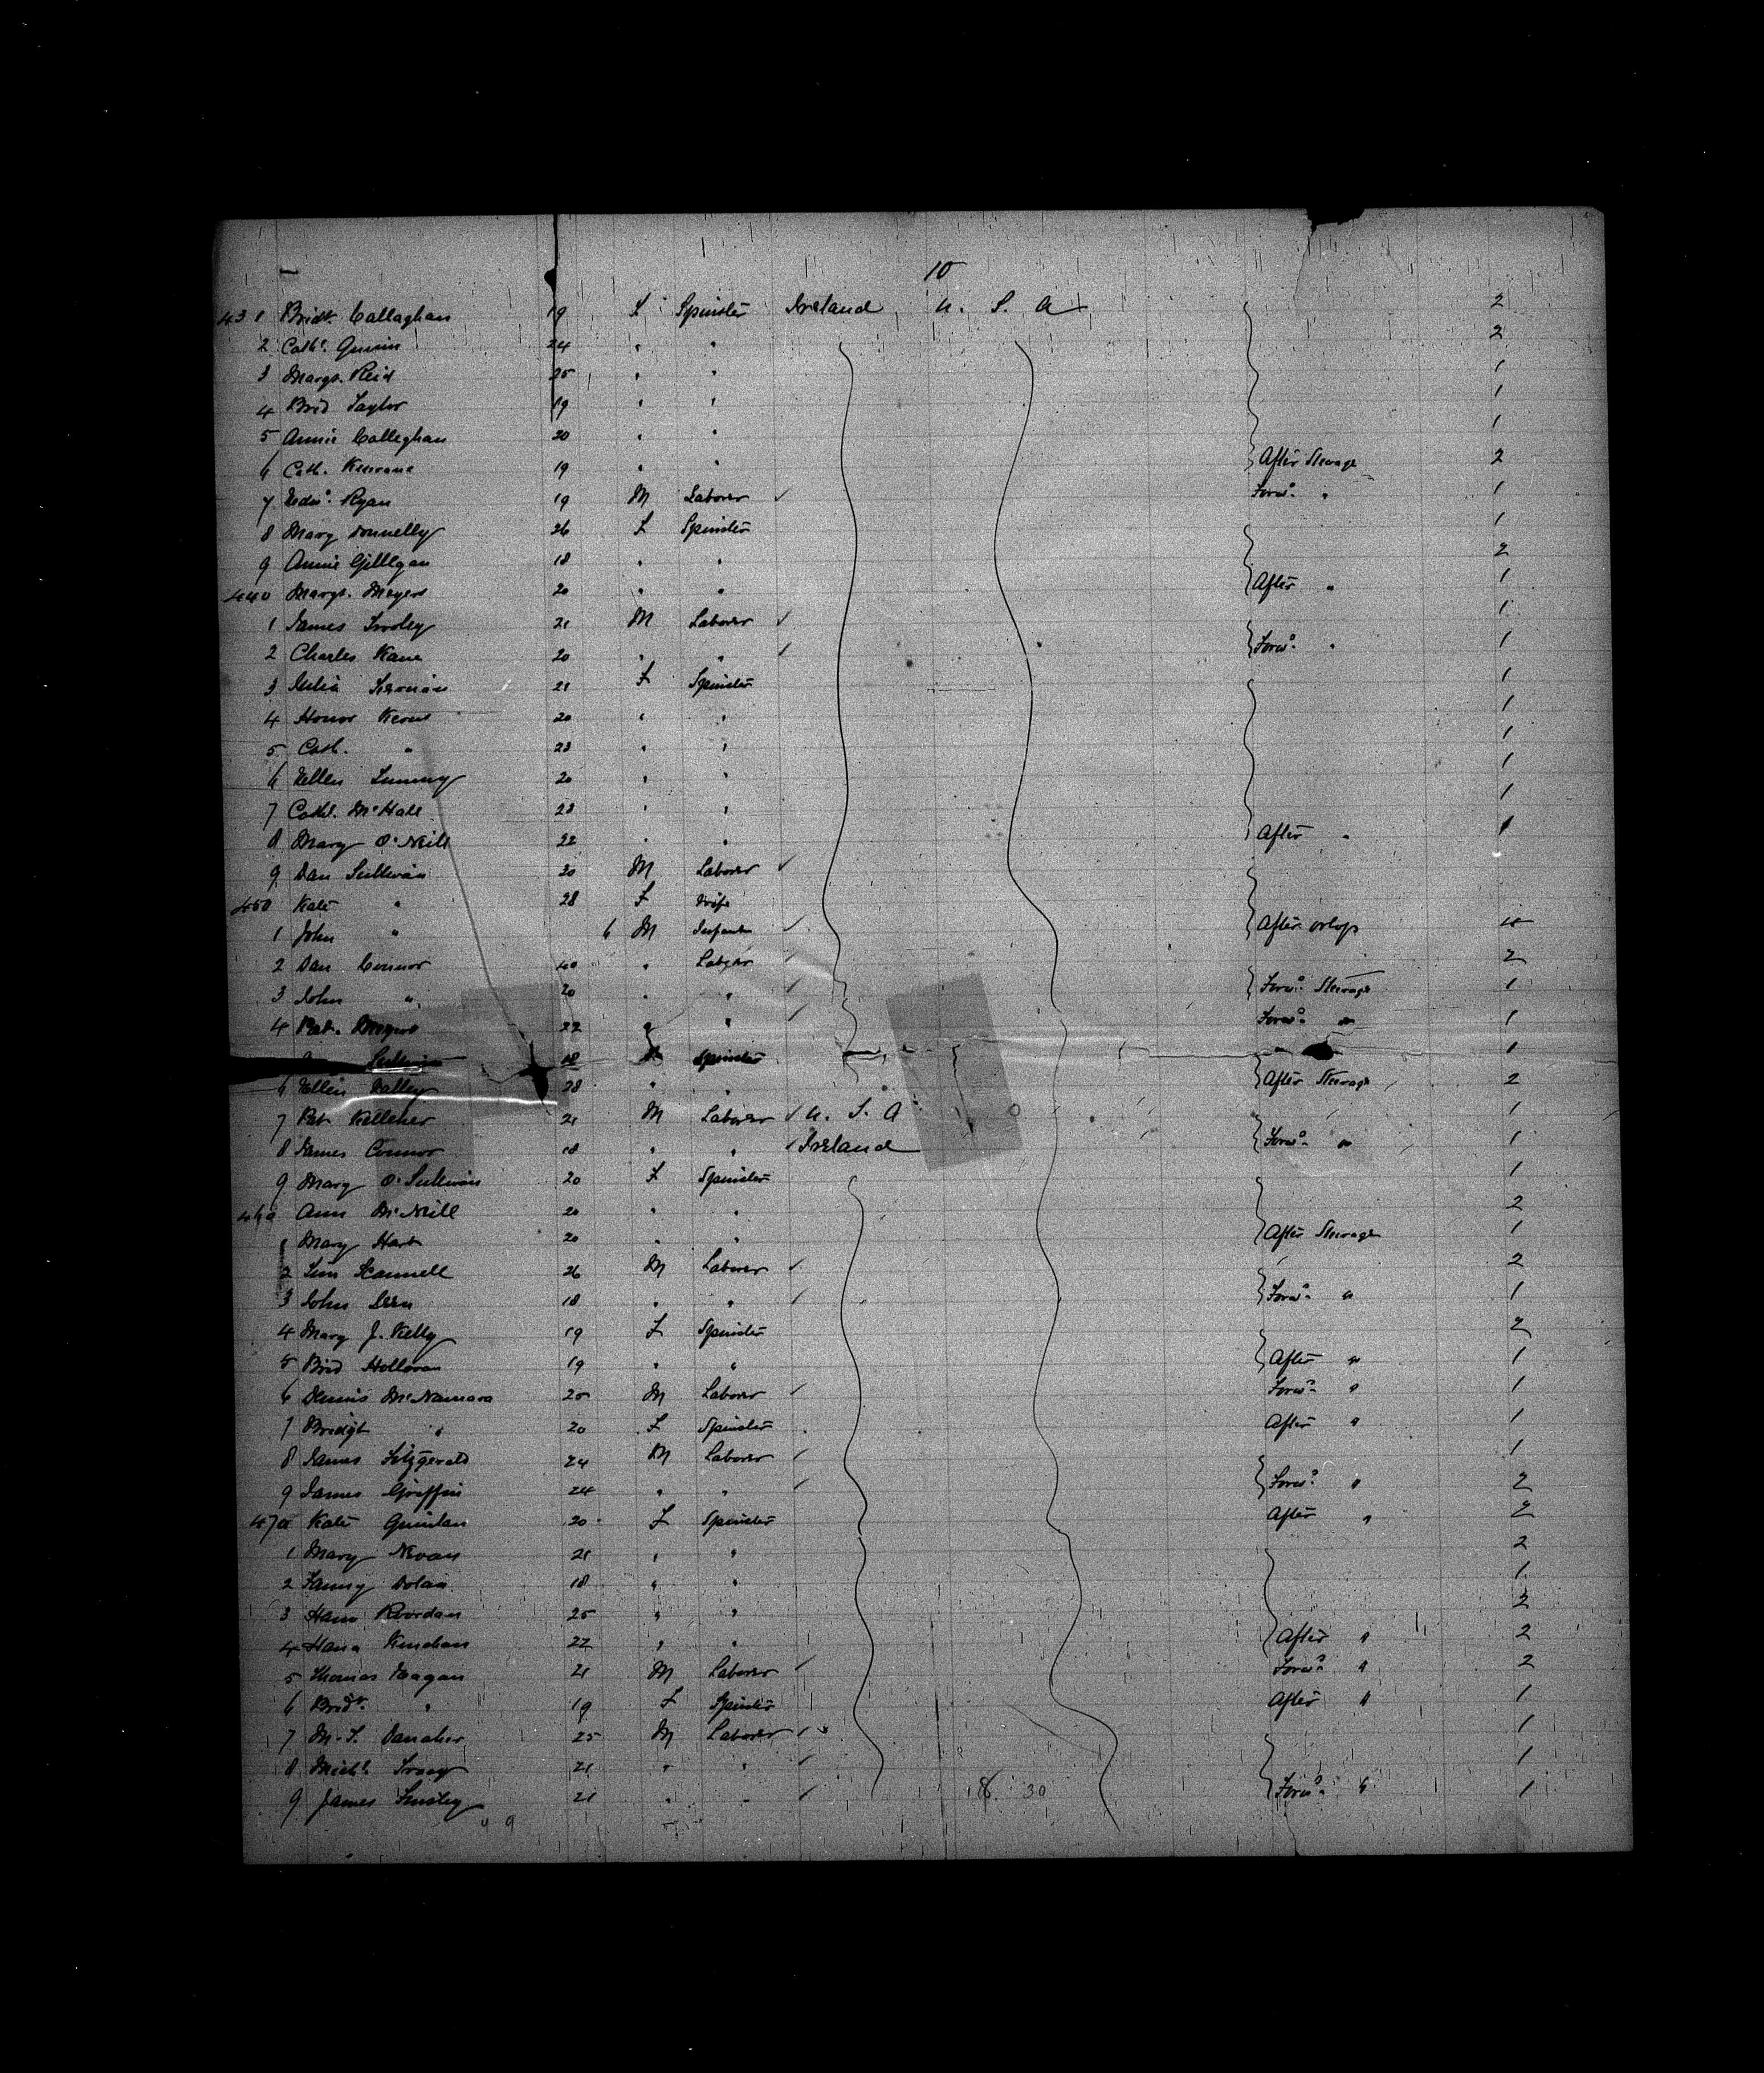 10
431 Bridt. Callaghan 19 F Spinster Ireland U. S. A 2
2 Cath. 24 " " 2
3 Margt. Reid 25 " " 1
4 Brid Taylor 19 " " 1
5 Annie Calleghan 20 " " 1
6 Cath. 19 " " After Steerage 2
7 Edwd. Ryan 19 M Laborer ✓ Forwd. " 1
8 Mary Donnelly 26 F Spinster 1
9 Annie Gilligan 18 " " 2
440 Margt. Meyers 20 " " After " 1
1 James 21 M Laborer ✓ 1
2 Charles Kane 20 " " ✓ Forwd. " 1
3 Julia 21 F Spinster 1
4 Honor 20 " " 1
5 Cath. " 23 " " 1
6 Ellen 20 " " 1
7 Cath. McHale 23 " " 1
8 Mary O'Neill 22 " " After " 1
9 Dan Sullivan 30 M Laborer ✓
450 Kate " 28 F Wife
1 John " 6 M Infant ✓ After orlop
2 Dan Connor 40 " Laborer ✓ 2
3 John " 20 " " ✓ Forwd. Steerage 1
4 Pat. Meyers 22 " " ✓ Forwd. " 1
Sullivan 18 Spinster 1
6 Ellen 28 " " After Steerage 2
7 Pat Kelleher 21 M Laborer ✓ U. S. A 1
8 James Connor 18 " " ✓ Ireland Forwd. " 1
9 Mary O'Sullivan 20 F Spinster 1
460 Ann McNeill 20 " " 2
1 Mary Hart 20 " " After Steerage 1
2 Scannell 26 M Laborer ✓ 2
3 John 18 " " ✓ Forwd. " 1
4 Mary J. Kelly 19 F Spinster 2
5 Brid Holloran 19 " " After " 1
6 Dennis McNamara 25 M Laborer ✓ Forwd. " 1
7 Bridgt " 20 F Spinster After " 1
8 James Fitzgerald 24 M Laborer ✓ 1
9 James Griffin 24 " " ✓ Forwd. " 2
470 Kate Quinlan 20 F Spinster After " 2
1 Mary 21 " " 2
2 Fanny Dolan 18 " " 1
3 Riordan 25 " " 2
4 Hana 22 " " After " 2
5 Thomas Eagan 21 M Laborer ✓ Forwd. " 2
6 Bridt. " 19 F Spinster After " 1
7 M. S. Danaher 25 M Laborer ✓ 1
8 Michl. 21 " " ✓ 1
9 James 21 " " ✓ 30 Forwd. " 1